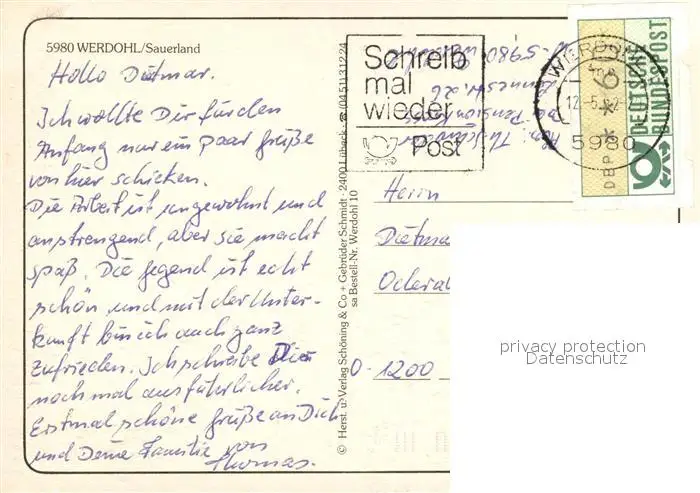 5980 WERDOHL/Sauerland
Hallo Dietmar.
Ich wollte Dir für den
Anfang nur ein paar Grüße
von hier schicken.
Die Arbeit ist ungewohnt und
anstrengend, aber sie macht
spaß. Die Gegend ist echt
schön und mit der Unter-
kunft bin ich auch ganz
zufrieden. Ich schreibe Dir
noch mal ausführlicher.
Erstmal schöne Grüße an Dich
und Deine Familie von
Thomas.
© Herst. u. Verlag Schöning & Co + Gebrüder Schmidt · 2400 Lübeck · ☎ (0451) 31224
sa Bestell-Nr. Werdohl 10
Schreib
mal
wieder
Post
WERDOHL
5980
DBP
DEUTSCHE
BUNDESPOST
Herrn
O-1200
privacy protection
Datenschutz